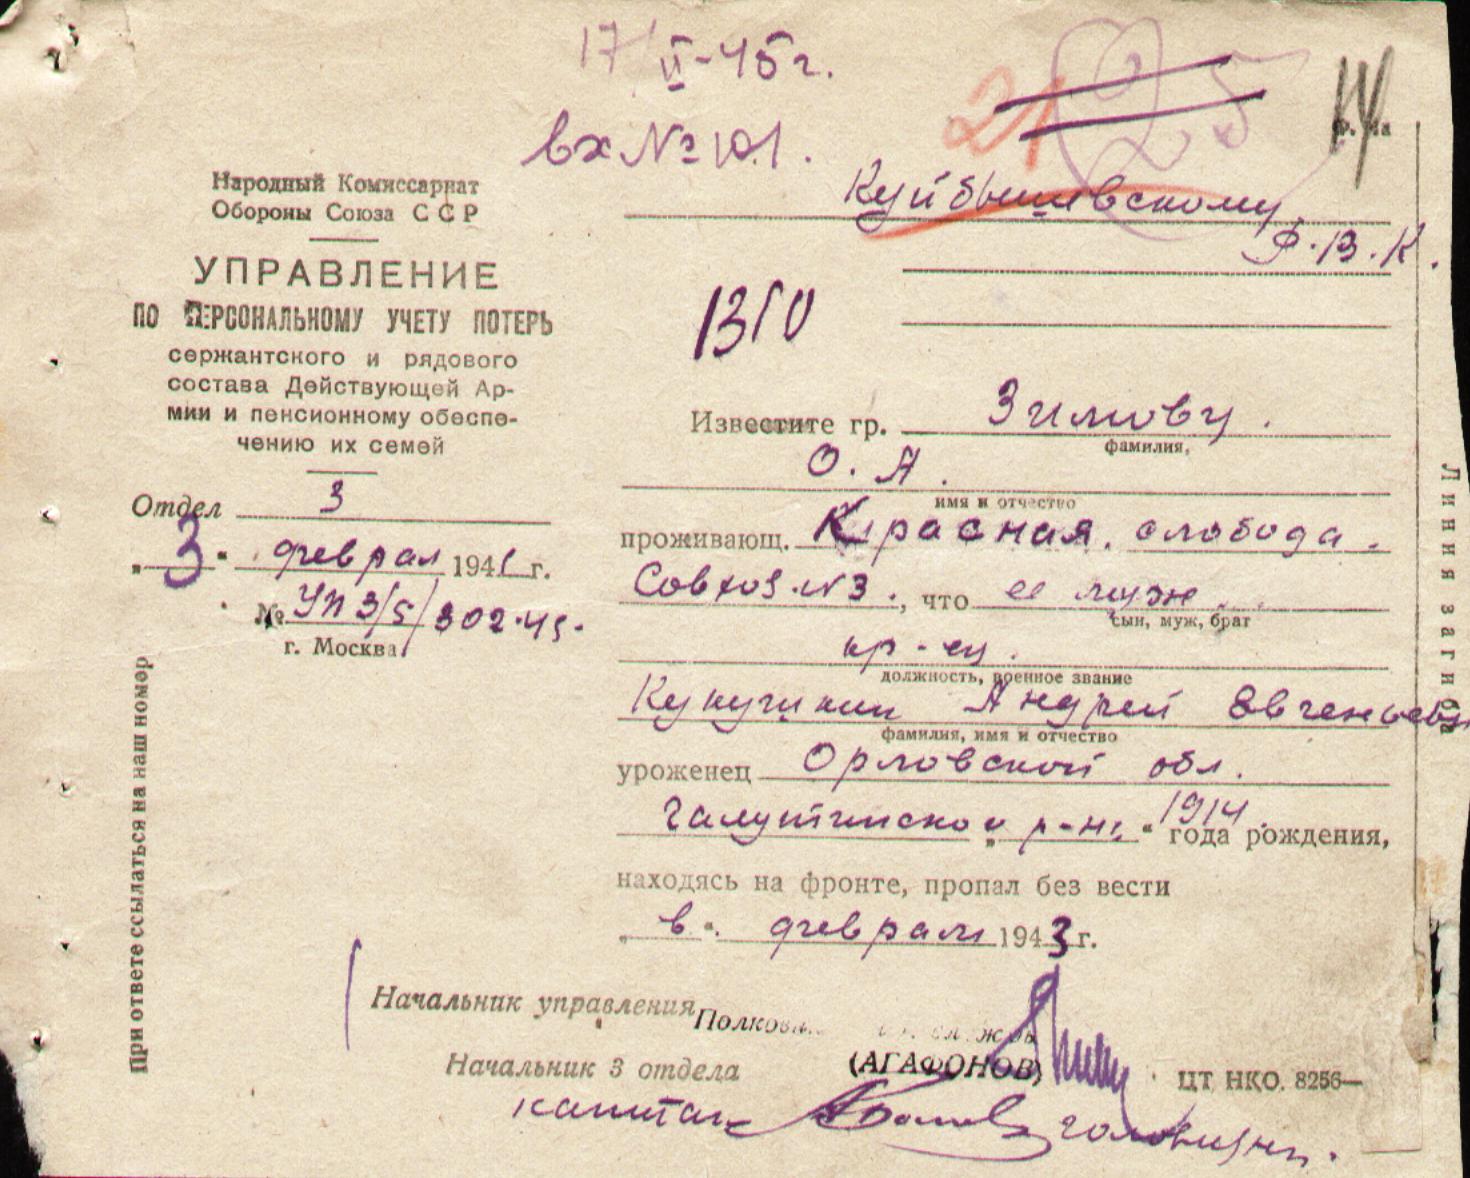 17/II-45 г.
вх № 101.
21
25
14
Народный Комиссариат
Обороны Союза ССР
УПРАВЛЕНИЕ
ПО ПЕРСОНАЛЬНОМУ УЧЕТУ ПОТЕРЬ
сержантского и рядового
состава Действующей Ар-
мии и пенсионному обеспе-
чению их семей
Отдел 3
„3“ феврал 1945 г.
№ УП 3/5/302.45.
г. Москва
При ответе ссылаться на наш номер
Куйбышевскому
Р.В.К.
1350
Известите гр. Зимову.
фамилия,
О. А.
имя и отчество
проживающ. Красная слобода.
Совхоз №3., что ее муж
сын, муж, брат
кр-ец.
должность, военное звание
Кукушкин Андрей Евгеньевич
фамилия, имя и отчество
уроженец Орловской обл.
р-на 1914
года рождения,
находясь на фронте, пропал без вести
„в“ феврале 1943 г.
Начальник управления
(АГАФОНОВ)
Начальник 3 отдела
капитан
ЦТ НКО. 8256—
Линия загиба